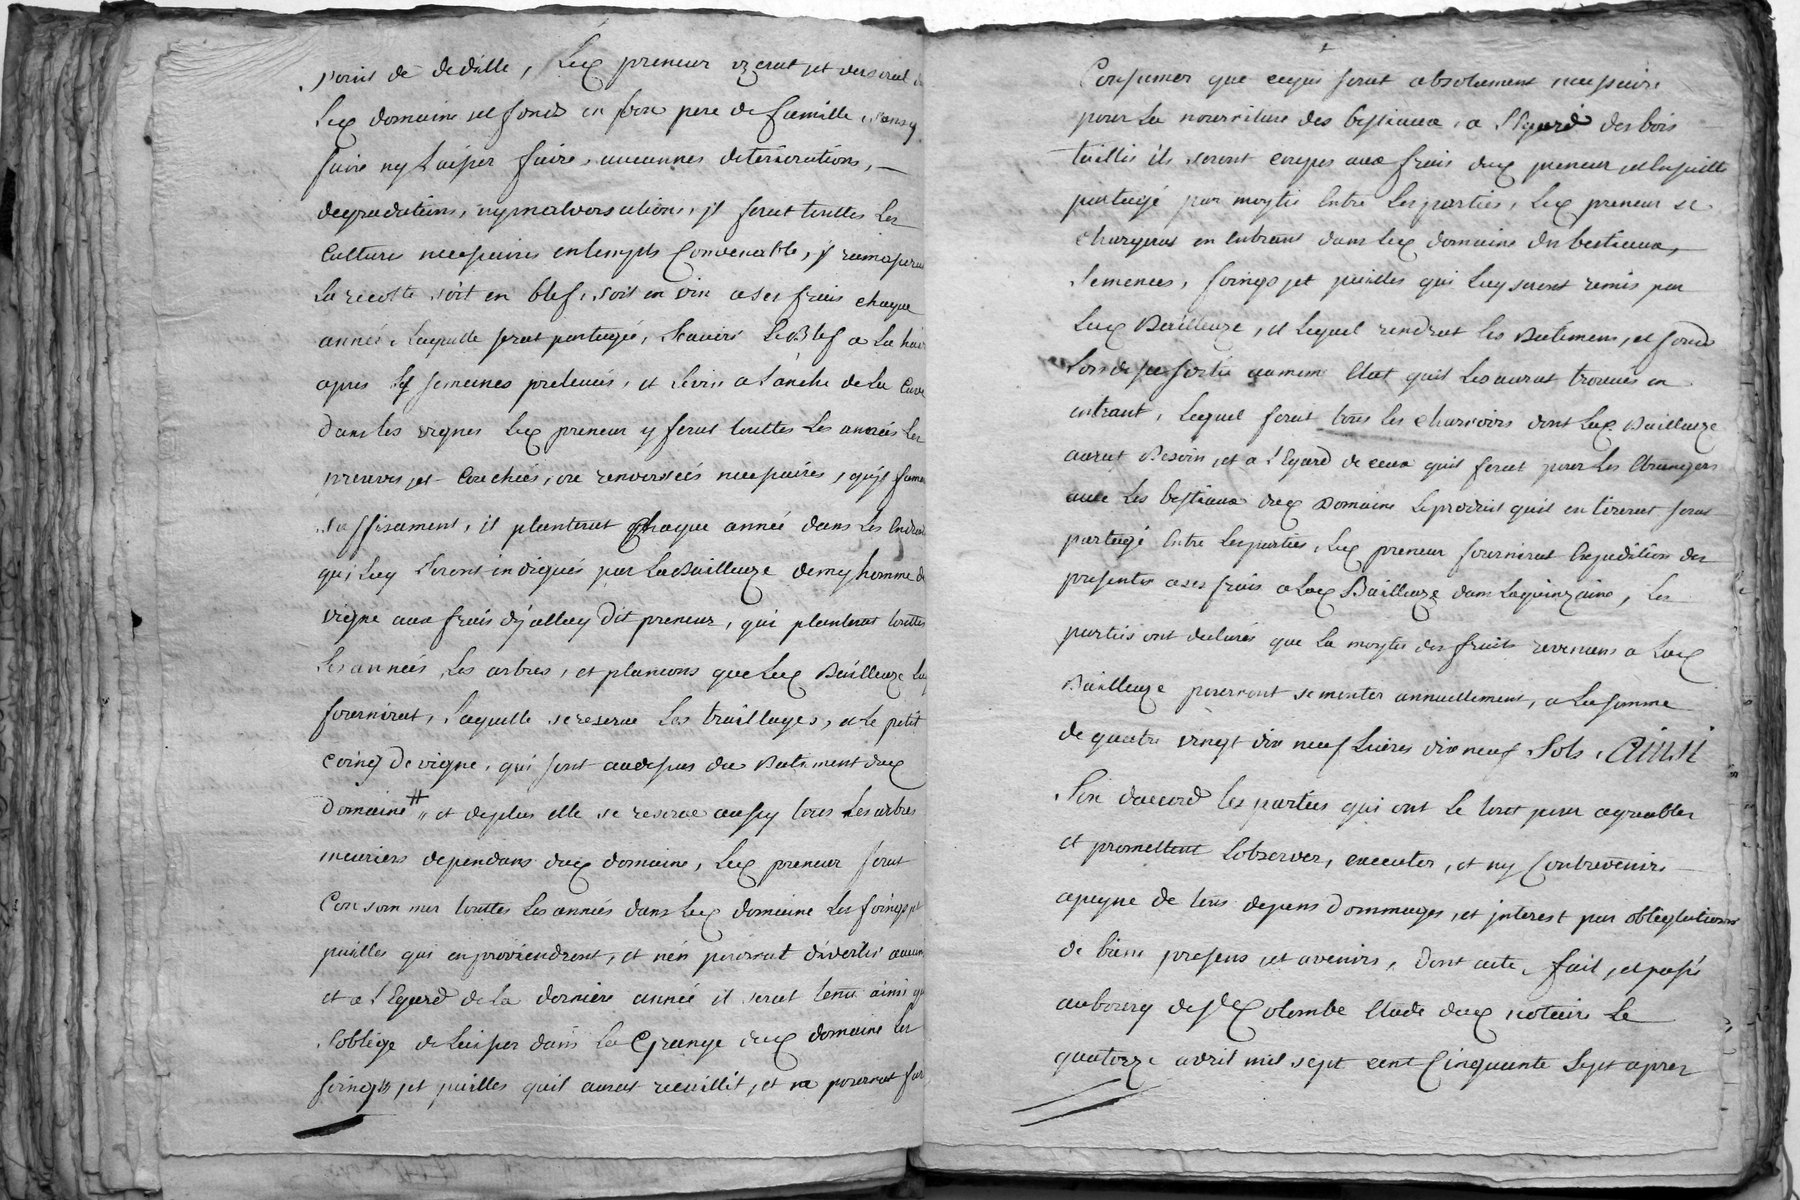 point de dedille, Led preneur uzerat et verserat
Led domaine et fond en bon pere de famille, sans y
faire ny Laisser faire, aucunnes deteriorations,
degradations, ny malversations, jl ferat touttes les
culture necessaires en temps Convenable, jl ramasserat
La recolte soit en blef, soit en vin a ses frais chaque
année, Laquelle serat partagée, scavoir Le Blef a La
apres Les semences prelevées, et Le vin a L'anche de La Cuve
Dans les vignes Led preneur y ferat touttes Les années Les
preuves et couchées, ou renversées necessaires, qu'jl
suffisament, il planterat chaque année dans Les Endroits
qui Luy seront indiqués par La d Bailleuze demy homme de
vigne aux frais du dit preneur, qui planterat touttes
Les années Les arbres, et plancons que Lad Bailleuze Luy
fournirat, Laquelle se reserve Les traillages, et Le petit
coing de vigne, qui sont au dessus du Batiment dud
Domaine # et de plus elle se reserve aussy tous Les arbres
meuriers dependans dud domaine, Led preneur ferat
Consommer touttes Les années dans Led domaine Les foings et
pailles qui en proviendront, et n'en pourrat divertir aucuns
et a l'Egard de La derniere année il serat tenu ainsi qu'il
s'oblige de Laisser dans La Grange dud domaine Les
foings, et pailles qu'il aurat recuillit, et ne pourrat faire
Consumer que ce qui serat absolument necessaire
pour La nourriture des bestiaux, a l'Egard des bois
taillis ils seront coupés aux frais dud preneur, et Ensuitte
partagé par moytié Entre Les parties, Led preneur se
chargerat en Entrant dans Led domaine des bestiaux,
semences, foings et pailles qui Luy seront remis par
Lad Bailleuze, et Lequel rendrat Les Batimens, et fond
Lors de sa sortie au meme Etat qu'il Les aurat trouvés en
entrant, Lequel ferat tous les charrois dont Lad Bailleuze
aurat Besoin, et a l'Egard de ceux qu'il ferat pour Les Etrangers
avec Les bestiaux dud Domaine Le produit qu'il en tirerat serat
partagé Entre Les parties, Led preneur fournirat Expedition des
presentes a ses frais a Lad Bailleuze dans La quinzaine, Les
parties ont declarés que La moytié des fruits revenans a Lad
Bailleuze pourront se monter annuellement, a La somme
de quatre vingt dix neuf Livres dix neuf Sols, Ainsi
Sont d'accord Les parties qui ont Le tout pour agreables
et promettent L'observer, executer, et ny Contrevenir
a peyne de tous depens Dommages, et jnterest par obligations
de biens presens et avenirs, dont acte, fait, et passé
au bourg de Ste Colombe Etude dud notaire Le
quatorze avril mil sept cent Cinquante Sept apres